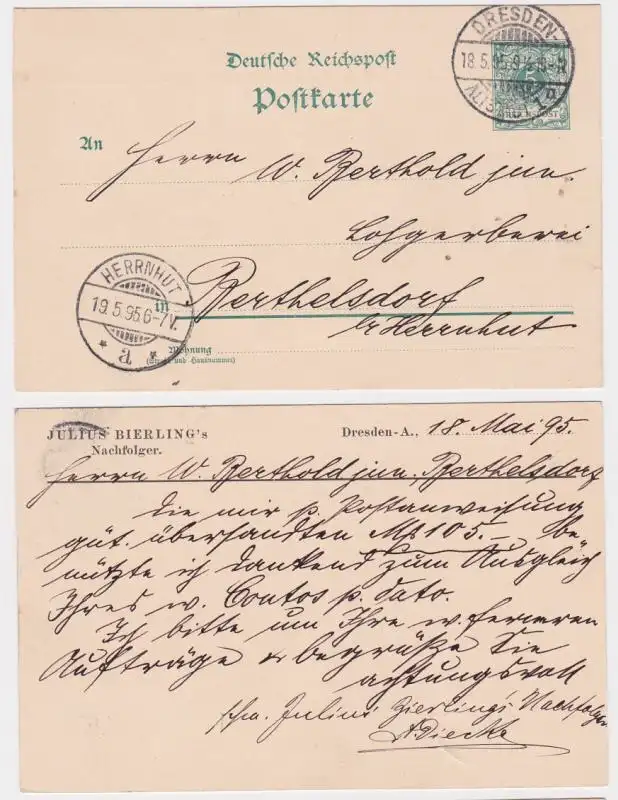 Deutsche Reichspost
Postkarte
DRESDEN-
18.5.95.
ALTST. 1.
5
REICHSPOST
An Herrn W. Berthold jun.
Lohgerberei
in Berthelsdorf
b/ Herrnhut
HERRNHUT
19.5.95.6-7V.
* a *
Wohnung
(Straße und Hausnummer)
JULIUS BIERLING's
Nachfolger.
Dresden-A., 18. Mai 95.
Herrn W. Berthold jun. Berthelsdorf
Die mir p. Postanweisung
güt. übersandten Mk 105.- be-
nützte ich dankend zum Ausgleich
Ihres w. Contos p. dato.
Ich bitte um Ihre w. ferneren
Aufträge & begrüße Sie
achtungsvoll
Julius Bierling's Nachfolger